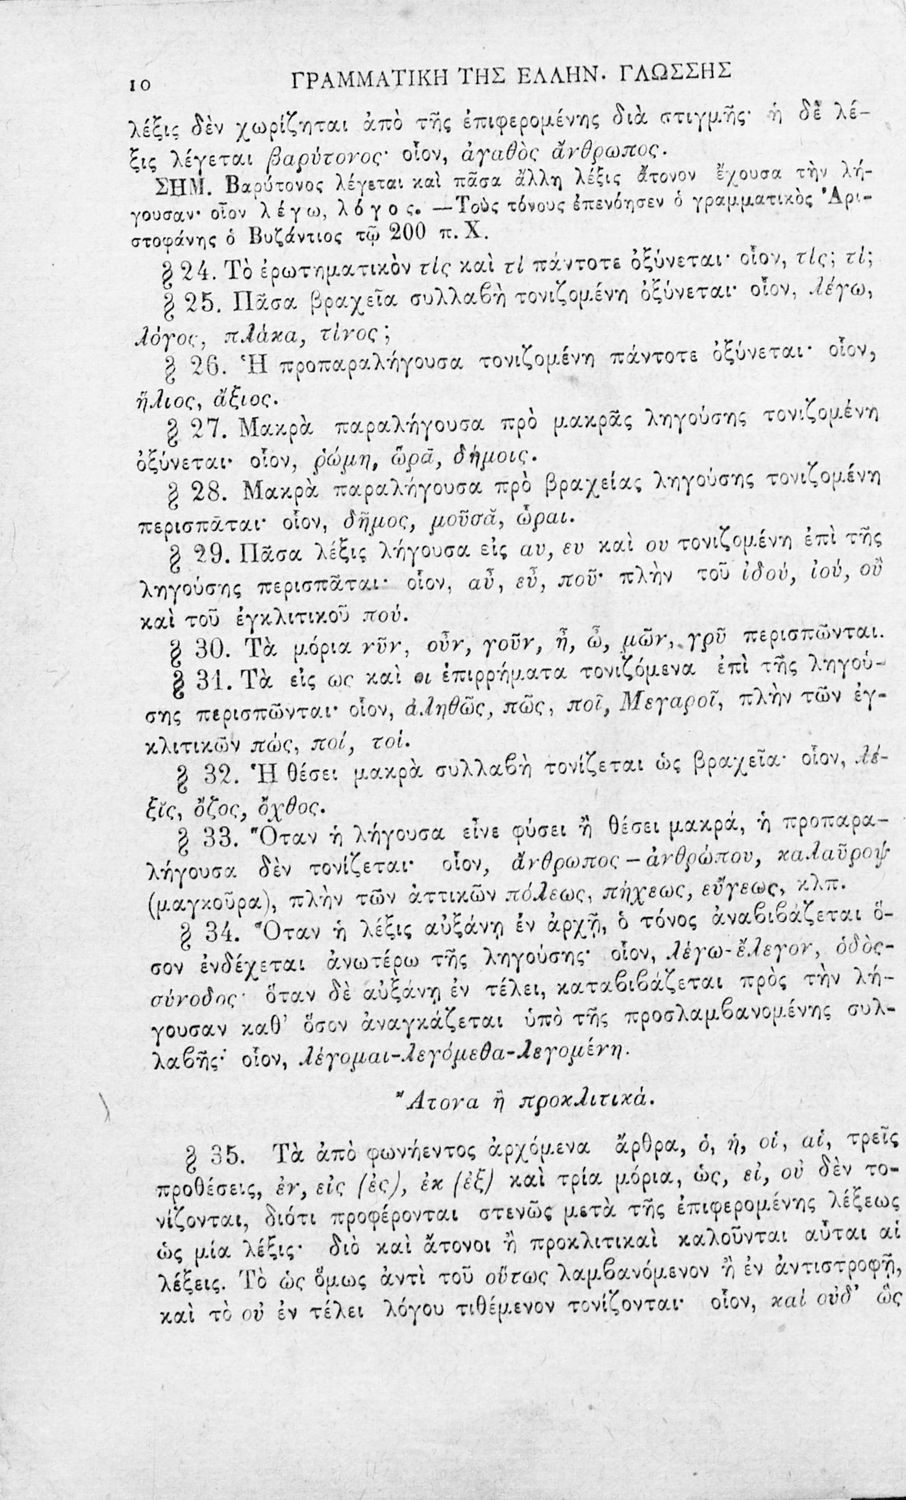 10 ΓΡΑΜΜΑΤΙΚΗ ΤΗΣ ΕΛΛΗΝ. ΓΛΩΣΣΗΣ
λέξις δὲν χωρίζηται ἀπὸ τῆς ἐπιφερομένης διὰ στιγμῆς· ἡ δὲ λέ-
ξις λέγεται βαρύτονος· οἷον, ἀγαθὸς ἄνθρωπος.
ΣΗΜ. Βαρύτονος λέγεται καὶ πᾶσα ἄλλη λέξις ἄτονον ἔχουσα τὴν λή-
γουσαν· οἷον λέγω, λόγος. —Τοὺς τόνους ἐπενόησεν ὁ γραμματικὸς Ἀρι-
στοφάνης ὁ Βυζάντιος τῷ 200 π. Χ.
§ 24. Τὸ ἐρωτηματικὸν τίς καὶ τί πάντοτε ὀξύνεται· οἷον, τίς; τί;
§ 25. Πᾶσα βραχεῖα συλλαβὴ τονιζομένη ὀξύνεται· οἷον, λέγω,
λόγος, πλάκα, τίνος;
§ 26. Ἡ προπαραλήγουσα τονιζομένη πάντοτε ὀξύνεται· οἷον,
ἥλιος, ἄξιος.
§ 27. Μακρὰ παραλήγουσα πρὸ μακρᾶς ληγούσης τονιζομένη
ὀξύνεται· οἷον, ῥώμη, ὥρᾱ, δήμοις.
§ 28. Μακρὰ παραλήγουσα πρὸ βραχείας ληγούσης τονιζομένη
περισπᾶται· οἷον, δῆμος, μοῦσᾰ, ὧραι.
§ 29. Πᾶσα λέξις λήγουσα εἰς αυ, ευ καὶ ου τονιζομένη ἐπὶ τῆς
ληγούσης περισπᾶται· οἷον, αὖ, εὖ, ποῦ· πλὴν τοῦ ἰδού, ἰού, οὒ
καὶ τοῦ ἐγκλιτικοῦ πού.
§ 30. Τὰ μόρια νῦν, οὖν, γοῦν, ἦ, ὦ, μῶν, γρῦ περισπῶνται.
§ 31. Τὰ εἰς ως καὶ οι ἐπιρρήματα τονιζόμενα ἐπὶ τῆς ληγού-
σης περισπῶνται· οἷον, ἀληθῶς, πῶς, ποῖ, Μεγαροῖ, πλὴν τῶν ἐγ-
κλιτικῶν πώς, ποί, τοί.
§ 32. Ἡ θέσει μακρὰ συλλαβὴ τονίζεται ὡς βραχεῖα· οἷον, λέ-
ξῐς, ὄζος, ὄχθος.
§ 33. Ὅταν ἡ λήγουσα εἶνε φύσει ἢ θέσει μακρά, ἡ προπαρα-
λήγουσα δὲν τονίζεται· οἷον, ἄνθρωπος — ἀνθρώπου, καλαῦροψ
(μαγκοῦρα), πλὴν τῶν ἀττικῶν πόλεως, πήχεως, εὔγεως, κλπ.
§ 34. Ὅταν ἡ λέξις αὐξάνῃ ἐν ἀρχῇ, ὁ τόνος ἀναβιβάζεται ὅ-
σον ἐνδέχεται ἀνωτέρω τῆς ληγούσης· οἷον, λέγω-ἔλεγον, ὁδὸς-
σύνοδος· ὅταν δὲ αὐξάνῃ ἐν τέλει, καταβιβάζεται πρὸς τὴν λή-
γουσαν καθ' ὅσον ἀναγκάζεται ὑπὸ τῆς προσλαμβανομένης συλ-
λαβῆς· οἷον, λέγομαι-λεγόμεθα-λεγομένη.
Ἄτονα ἢ προκλιτικά.
§ 35. Τὰ ἀπὸ φωνήεντος ἀρχόμενα ἄρθρα, ὁ, ἡ, οἱ, αἱ, τρεῖς
προθέσεις, ἐν, εἰς (ἐς), ἐκ (ἐξ) καὶ τρία μόρια, ὡς, εἰ, οὐ δὲν το-
νίζονται, διότι προφέρονται στενῶς μετὰ τῆς ἐπιφερομένης λέξεως
ὡς μία λέξις· διὸ καὶ ἄτονοι ἢ προκλιτικαὶ καλοῦνται αὗται αἱ
λέξεις. Τὸ ὡς ὅμως ἀντὶ τοῦ οὕτως λαμβανόμενον ἢ ἐν ἀντιστροφῇ,
καὶ τὸ οὐ ἐν τέλει λόγου τιθέμενον τονίζονται· οἷον, καὶ οὐδ' ὣς